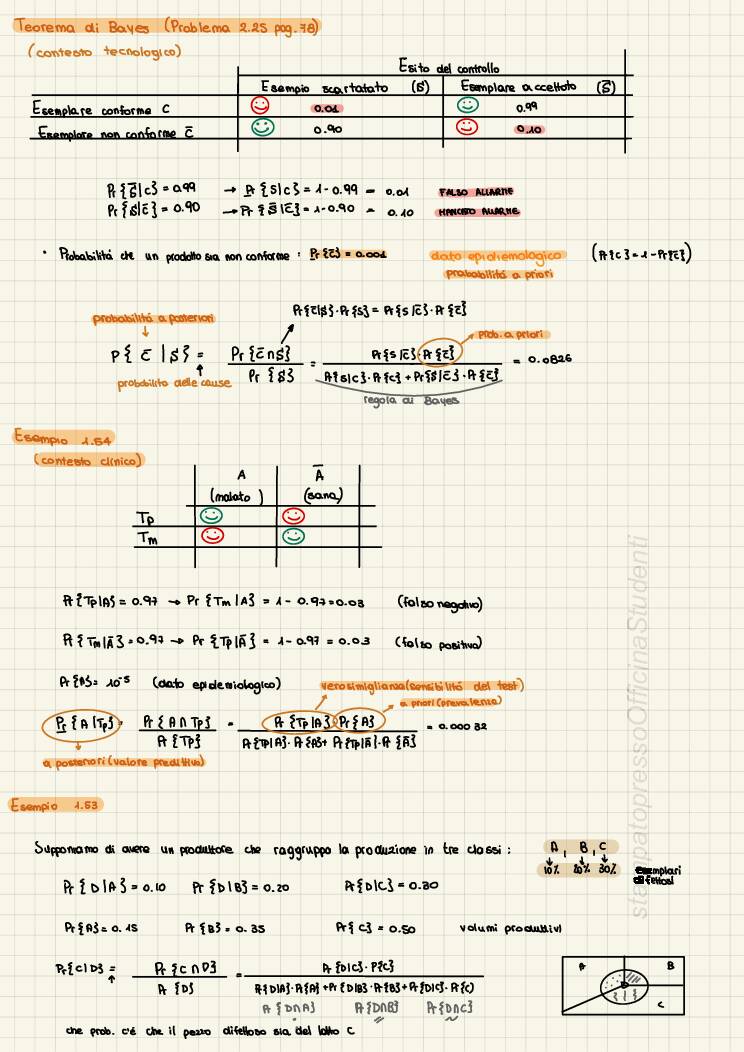 Teorema di Bayes (Problema 2.25 pag. 78)
(contesto tecnologico)
Esito del controllo
Esempio scartatato (S) Esemplare accettato (S̅)
Esemplare conforme C 0.01 0.99
Esemplare non conforme C̅ 0.90 0.10
Pr{S̅|C} = 0.99 → Pr{S|C} = 1-0.99 = 0.01 FALSO ALLARME
Pr{S|C̅} = 0.90 → Pr{S̅|C̅} = 1-0.90 = 0.10 MANCATO ALLARME
• Probabilitá che un prodotto sia non conforme : Pr{C̅} = 0.001 dato epidiemologico (Pr{C} = 1-Pr{C̅})
probabilitá a priori
Pr{C̅|S}·Pr{S} = Pr{S|C̅}·Pr{C̅}
probabilitá a posteriori
prob. a priori
P{C̅|S} = Pr{C̅∩S} / Pr{S} = Pr{S|C̅}·Pr{C̅} / Pr{S|C}·Pr{C} + Pr{S|C̅}·Pr{C̅} = 0.0826
probabilitá delle cause
regola di Bayes
Esempio 1.54
(contesto clinico)
A A̅
(malato) (sano)
Tp
Tm
Pr{Tp|A} = 0.97 → Pr{Tm|A} = 1-0.97=0.03 (falso negativo)
Pr{Tm|A̅} = 0.97 → Pr{Tp|A̅} = 1-0.97 = 0.03 (falso positivo)
Pr{A} = 10⁻⁵ (dato epidemiologico)
verosimiglianza (sensibilitá del test)
a priori (prevalenza)
Pr{A|Tp} = Pr{A∩Tp} / Pr{Tp} = Pr{Tp|A} Pr{A} / Pr{Tp|A}·Pr{A} + Pr{Tp|A̅}·Pr{A̅} = 0.00032
a posteriori (valore predittivo)
Esempio 1.53
Supponiamo di avere un produttore che raggruppa la produzione in tre classi : A , B , C
10% 20% 30% esemplari difettosi
Pr{D|A} = 0.10 Pr{D|B} = 0.20 Pr{D|C} = 0.30
Pr{A} = 0.15 Pr{B} = 0.35 Pr{C} = 0.50 volumi produttivi
Pr{C|D} = Pr{C∩D} / Pr{D} = Pr{D|C}·P{C} / Pr{D|A}·Pr{A} + Pr{D|B}·Pr{B} + Pr{D|C}·Pr{C}
Pr{D∩A} Pr{D∩B} Pr{D∩C}
che prob. c'é che il pezzo difettoso sia del lotto C
A B
D
C
stampatopressoOfficinaStudenti